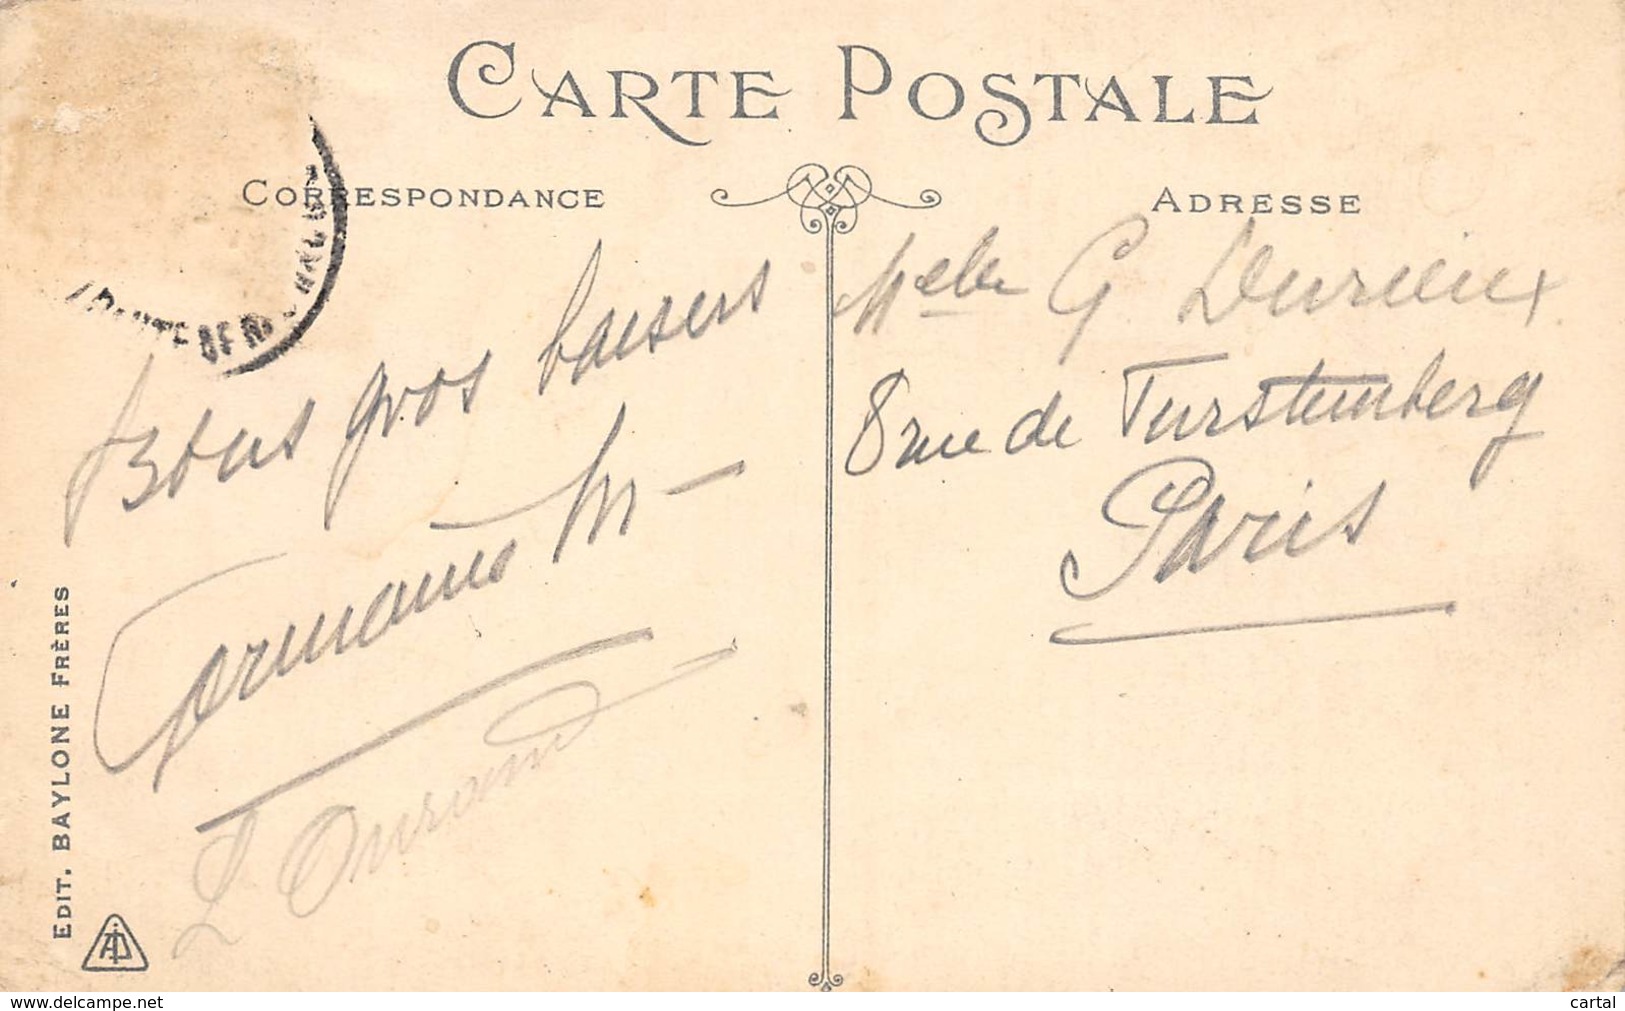 CARTE POSTALE
CORRESPONDANCE
ADRESSE
Bons gros baisers
Germaine M
L Durand
Melle G Durieux
8 rue de Furstemberg
Paris
EDIT. BAYLONE FRÈRES
www.delcampe.net
cartal